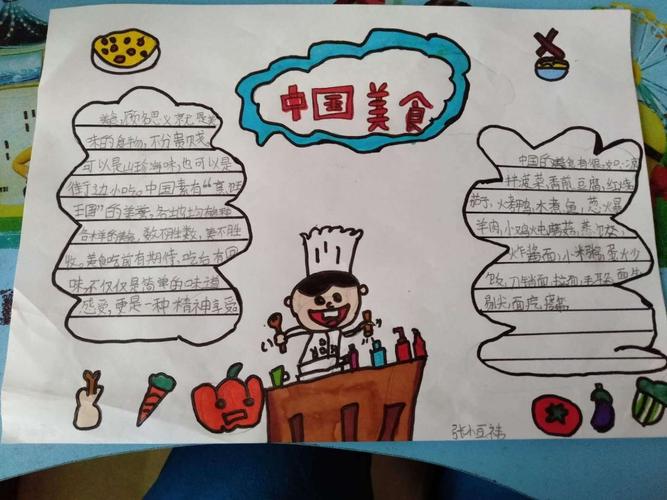 中国美食
美食,顾名思义就是美
味的食物,不分贵贱
可以是山珍海味,也可以是
街边小吃。中国素有“烹饪
王国”的美誉。各地均有
各式各样的美食,数不胜数,美不胜
收。美食吃前有期待,吃后有回
味,不仅仅是简单的味道
感受,更是一种精神享受
中国的美食有很多,如:凉
拌菠菜,香煎豆腐,红烧
茄子,火爆鸭,水煮鱼,葱爆
羊肉,小鸡炖蘑菇,蒸饺,
炸酱面,小米粥,蛋炒
饭,刀削面,拉面,
剔尖,面皮,